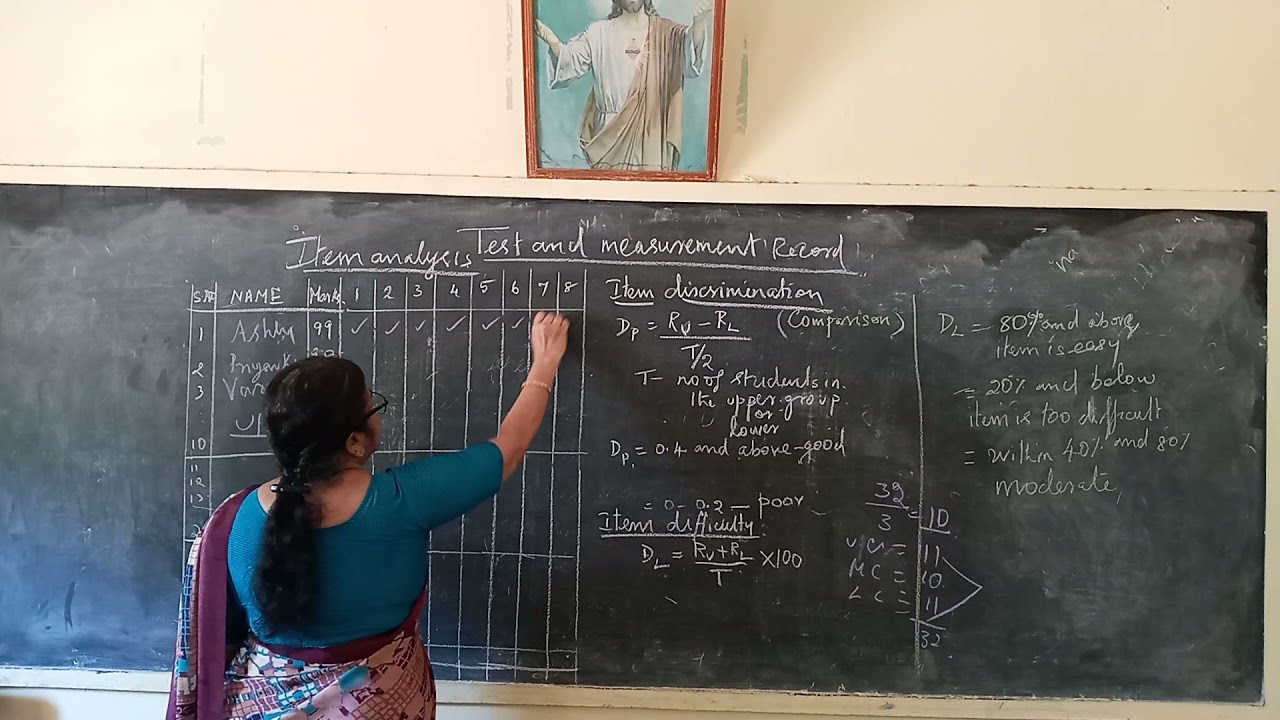 Item analysis Test and measurement Record
S.No NAME Marks 1 2 3 4 5 6 7 8
1 Ashby 99 ✓ ✓ ✓ ✓ ✓ ✓
2
3
10
11
12
13
Item discrimination
Dp = RU − RL (Comparison)
T/2
T − no of students in
the upper group
or
lower
Dp = 0.4 and above - good
= 0 - 0.2 — poor
Item difficulty
DL = RU + RL X100
T
32
3 = 10
= 11
MC = 10
LC = 11
32
DL − 80% and above
item is easy
= 20% and below
item is too difficult
= within 40% and 80%
moderate,